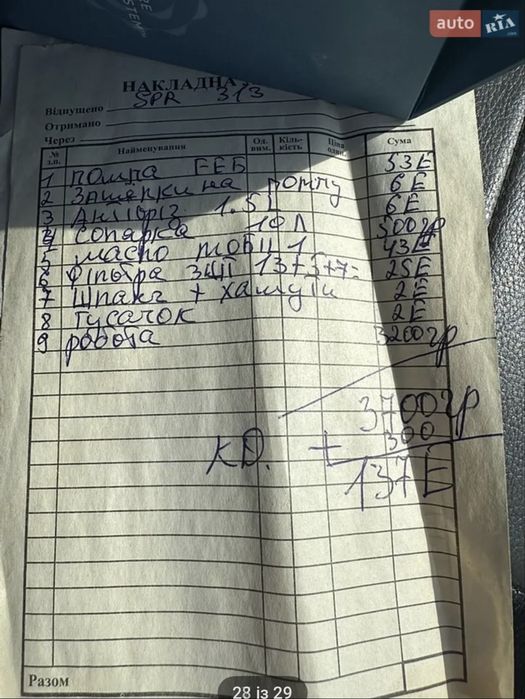 auto RIA.com
НАКЛАДНА
SPR 313
Відпущено
Отримано
Через
№ з.п. Найменування Од. вим. Кіль-кість Ціна Сума
1 помпа FEБ 53Е
2 Защіпки на помпу 6Е
3 Антіфріз 1.5 6Е
4 сопарка 500гр
5 масло мобіл 1 10л 43Е
6 Фільтра 3шт 13+5+7= 25Е
7 Шланг + хамути 2Е
8 Гусачок 2Е
9 робота 3200гр
3700гр
К.D. + 300
137Е
Разом
28 із 29